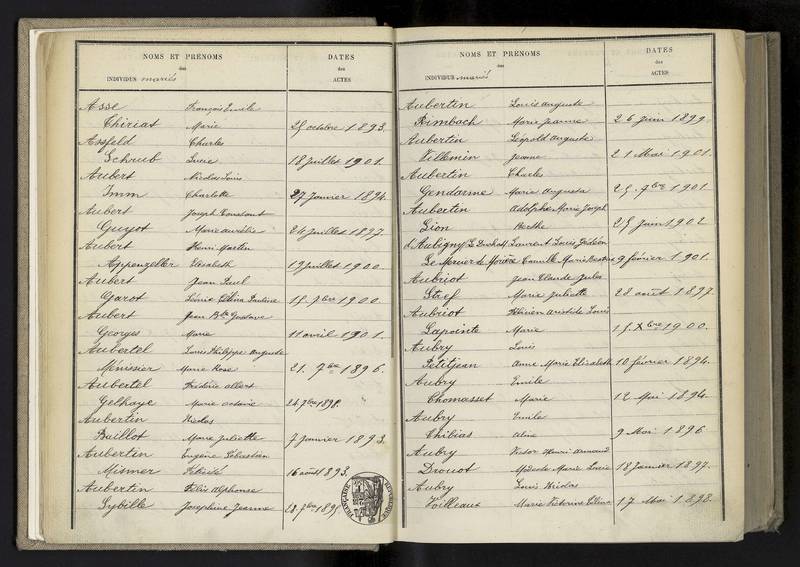 NOMS ET PRÉNOMS
des
INDIVIDUS mariés
DATES
des
ACTES
Asse François Emile
Thiriat Marie 25 octobre 1893.
Assfeld Charles
Schrub Lucie 18 juillet 1901.
Aubert Nicolas Louis
Imm Charlotte 27 Janvier 1894.
Aubert Joseph Constant
Guyot Marie aurélie 24 juillet 1897.
Aubert Henri Martin
Appenzeller Elisabeth 19 juillet 1900.
Aubert Jean Paul
Garot Célina Pauline 15. 7bre 1900.
Aubert Jean Bte Gustave
Georges Marie 11 avril 1901.
Aubertel Louis Philippe Auguste
Ménissier Marie Rose 21. 7bre 1896.
Aubertel Frédéric albert
Gelhaye Marie octavie 24 7bre 1898.
Aubertin Nicolas
Baillot Marie Juliette 7 Janvier 1893.
Aubertin Eugène Sébastien
Mismer Félicité 16 août 1893.
Aubertin Félix Alphonse
Sybille Joséphine Jeanne 28. 7bre 1895
RÉPUBLIQUE FRANÇAISE
NOMS ET PRÉNOMS
des
INDIVIDUS mariés
DATES
des
ACTES
Aubertin Louis Auguste
Rimbach Marie Jeanne 26 juin 1899.
Aubertin Léopold Auguste
Villemin Jeanne 21 Mai 1901.
Aubertin Charles
Gendarme Marie Augusta 25. 9bre 1901.
Aubertin Adolphe Marie Joseph
Lion Berthe 25 juin 1902
d'Aubigny Laurent Louis Gédéon
Le Mercier de Morière Camille Marie 9 février 1901.
Aubriot Jean Claude Jules
Stref Marie Juliette 28 août 1897.
Aubriot aristide Louis
Lapointe Marie 15 Xbre 1900.
Aubry Louis
Petitjean Anne Marie Elisabeth 10 février 1894.
Aubry Emile
Chomasset Marie 12 Mai 1894.
Aubry Emile
Thibias Aline 9 Mai 1896
Aubry Victor Henri Armand
Drouot Modeste Marie Louise 18 Janvier 1897.
Aubry Louis Nicolas
Voilleaux Marie Victorine 17 Mai 1898.